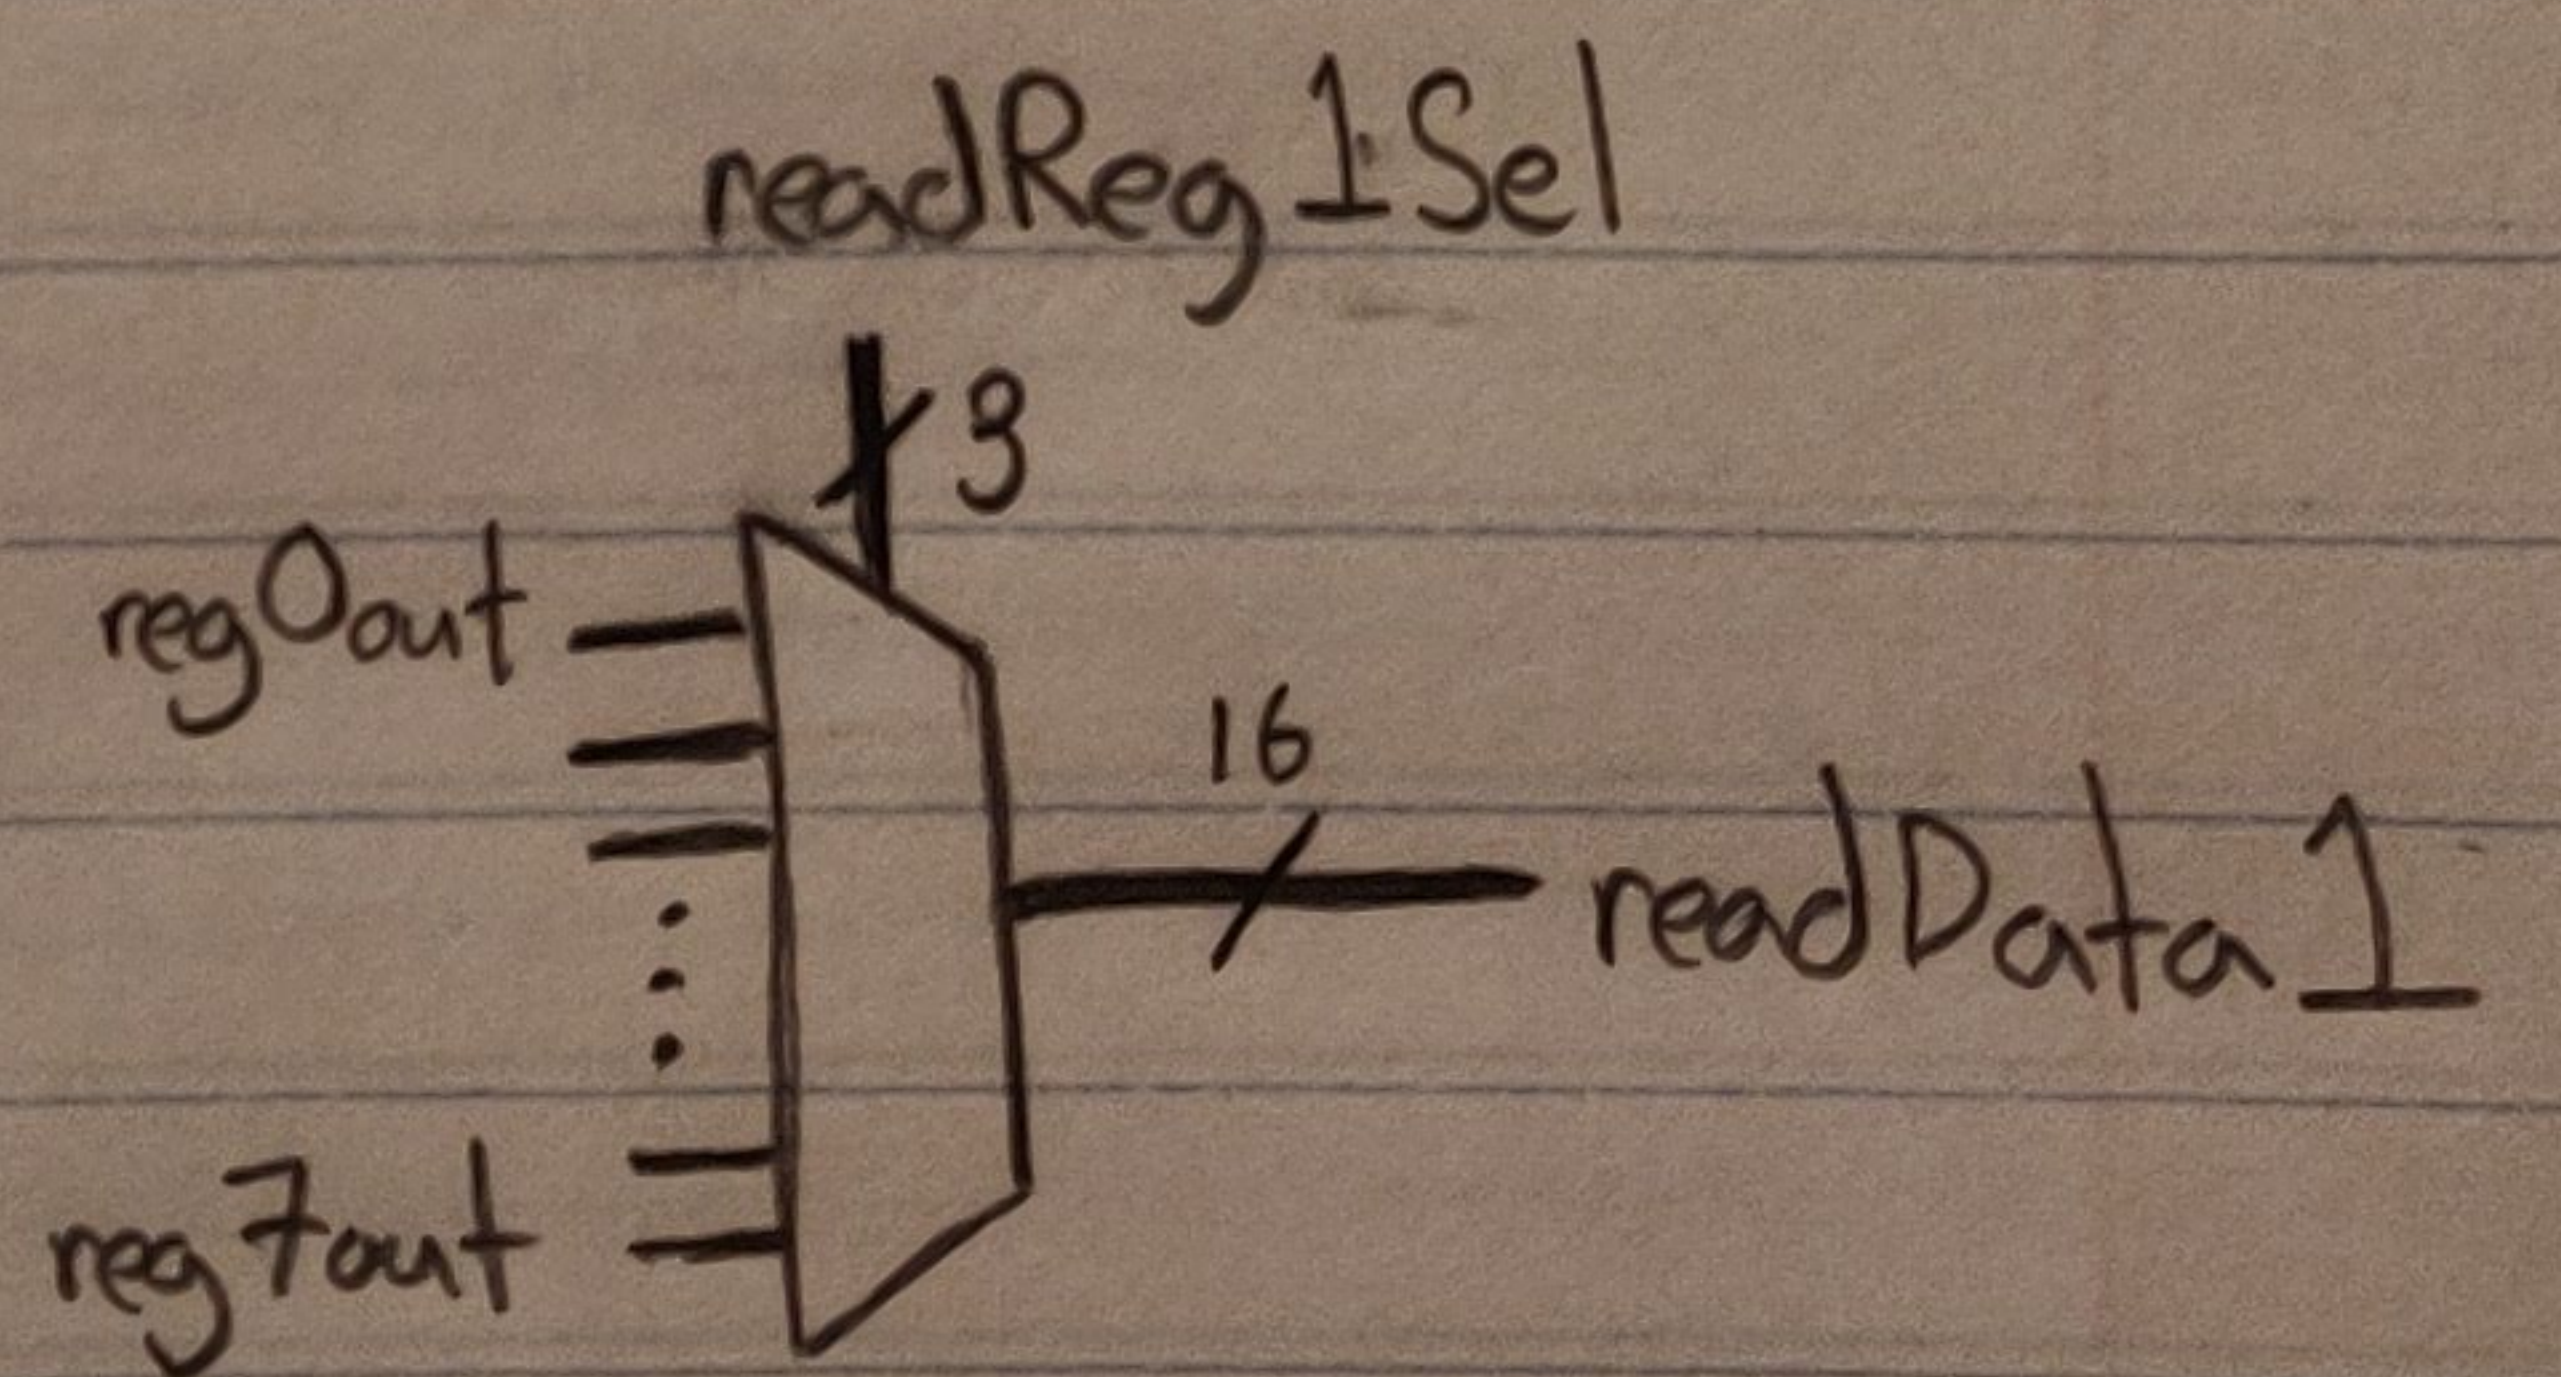 readReg1Sel
3
reg0out
16
readData1
reg7out